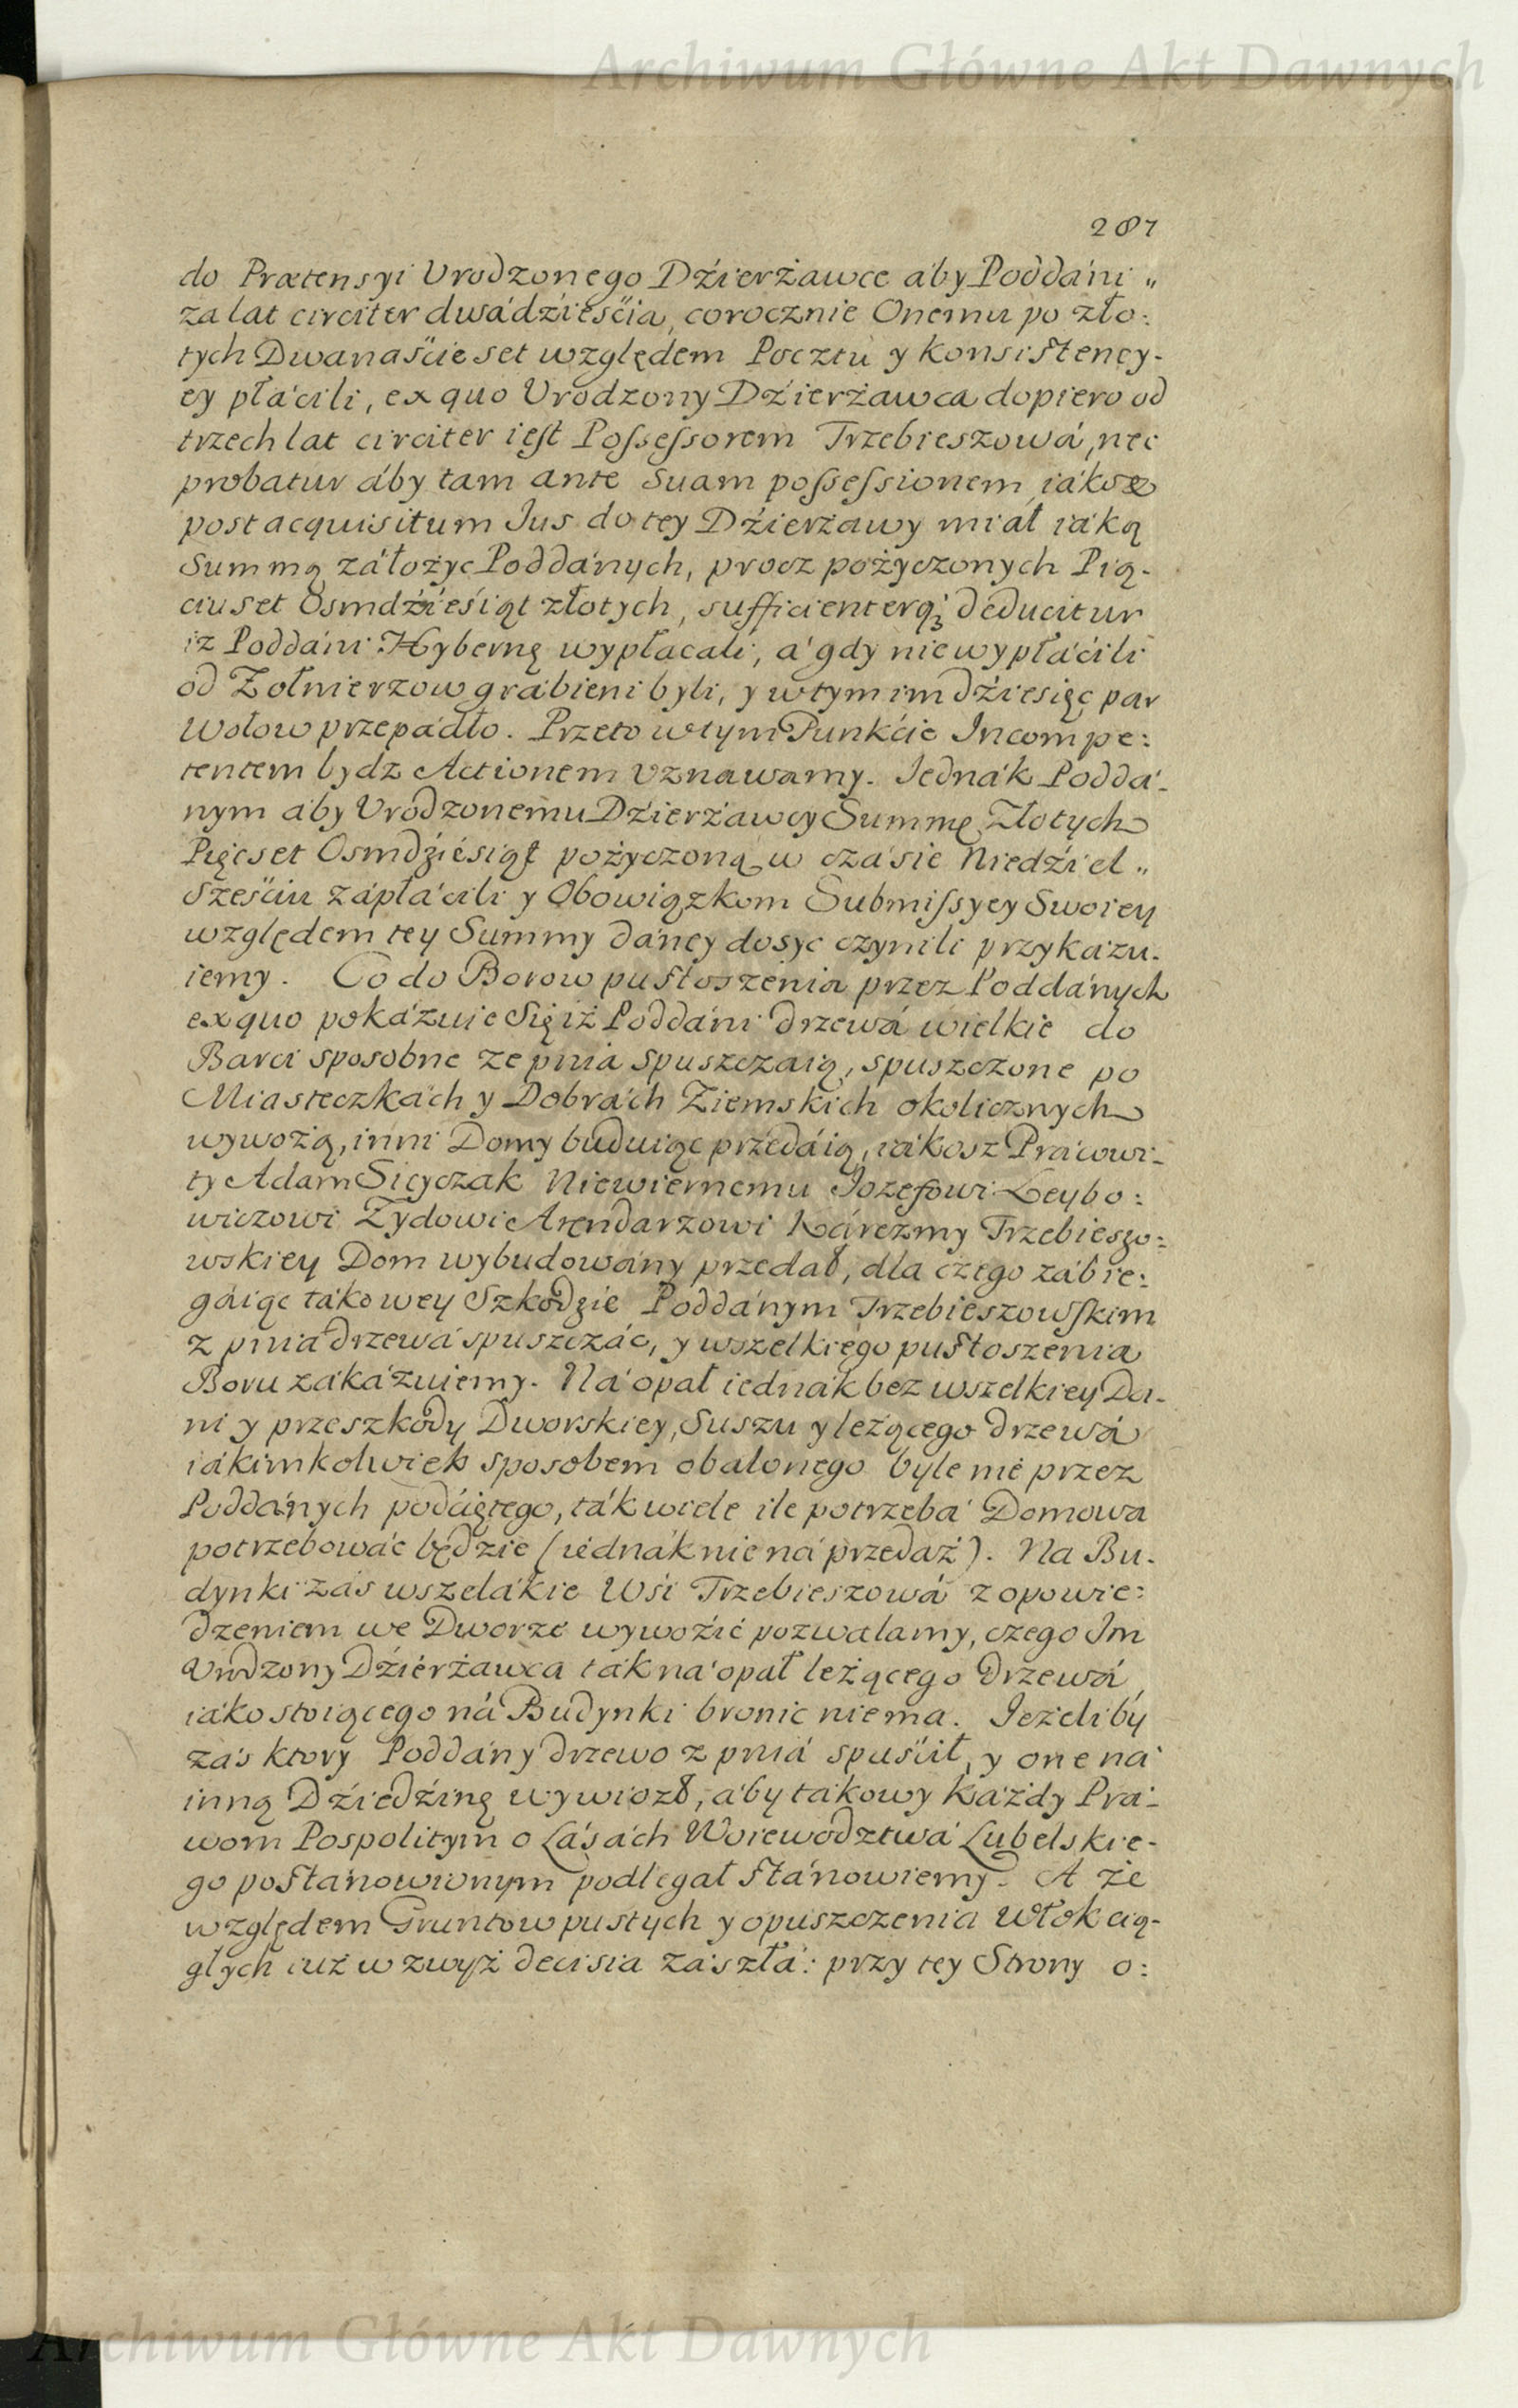 Archiwum Główne Akt Dawnych
287
do Prætensyi Urodzonego Dźierżawce aby Poddáni „
za lat circiter dwádźieśćia, corocznie Onemu po zło:
tych Dwanaśćie set względem Pocztu y Konsistency-
ey płáćili, ex quo Urodzony Dźierżawca dopiero od
trzech lat circiter iest Possessorem Trzebieszowá, nec
probatur áby tam ante Suam possessionem iáko &
post acquisitum Jus do tey Dźierżawy miał iáką
Summą záłożyc Poddánych, procz pożyczonych Pią-
ciuset Osmdźieśiąt złotych, sufficienterq; deducitur
iz Poddáni Hybernę wypłacali, á gdy nie wypłáćili
od Zołnierzow grabieni byli, y w tym im dźiesięc par
Wołow przepádło. Przeto w tym Punkćie Incompe:
tentem bydz Actionem Uznawamy. Jednák Poddá-
nym áby Urodzonemu Dźierżawcy Summę Złotych
Pięcset Osmdźiésiąt pożyczoną w czásie Niedźiel „
Sześciu zápłáćili y Obowiązkom Submissyey Swoiey
względem tey Summy dáney dosyc czynili przykazu-
iemy. Co do Borow pustoszenia przez Poddánych
ex quo pokázuie Się iż Poddáni drzewá wielkie do
Barci sposobne ze pnia spuszczaią, spuszczone po
Miasteczkách y Dobrách Ziemskich okolicznych
wywożą, inni Domy buduiąc przedáią, iákosz Prácowi-
ty Adam Sicyczak Niewiernemu Jozefowi Leybo:
wiczowi Zydowi Arendarzowi Kárczmy Trzebieszo:
wskiey Dom wybudowány przedał, dla czego zábie:
gáiąc tákowey Szkodzie Poddánym Trzebieszowskim
z pnia drzewá spuszczáć, y wszelkiego pustoszenia
Boru zákázuiemy. Ná opał iednák bez wszelkiey Da-
ni y przeszkody Dworskiey, Suszu y leżącego drzewá
iákimkolwiek sposobem obalonego byle nie przez
Poddánych podćiętego, ták wiele ile potrzebá Domowa
potrzebowáć będzie (iednák nie ná przedaż). Na Bu-
dynki zás wszelákie Wśi Trzebieszowá z opowie:
dzeniem we Dworze wywoźić pozwalamy, czego Im
Urodzony Dźiérżawca ták ná opał leżącego drzewá
iáko stoiącego ná Budynki bronic niema. Jeżeliby
zás ktory Poddány drzewo z pniá spuśćił, y one ná
inną Dźiedźinę wywiozł, áby tákowy Káżdy Prá-
wom Pospolitym o Lásách Woiewodztwá Lubelskie-
go postánowionym podlegał Stánowiemy. A że
względem Gruntow pustych y opuszczenia Włok cią-
głych iuż w zwyż decisia zászłá: przy tey Strony o:
Archiwum Główne Akt Dawnych